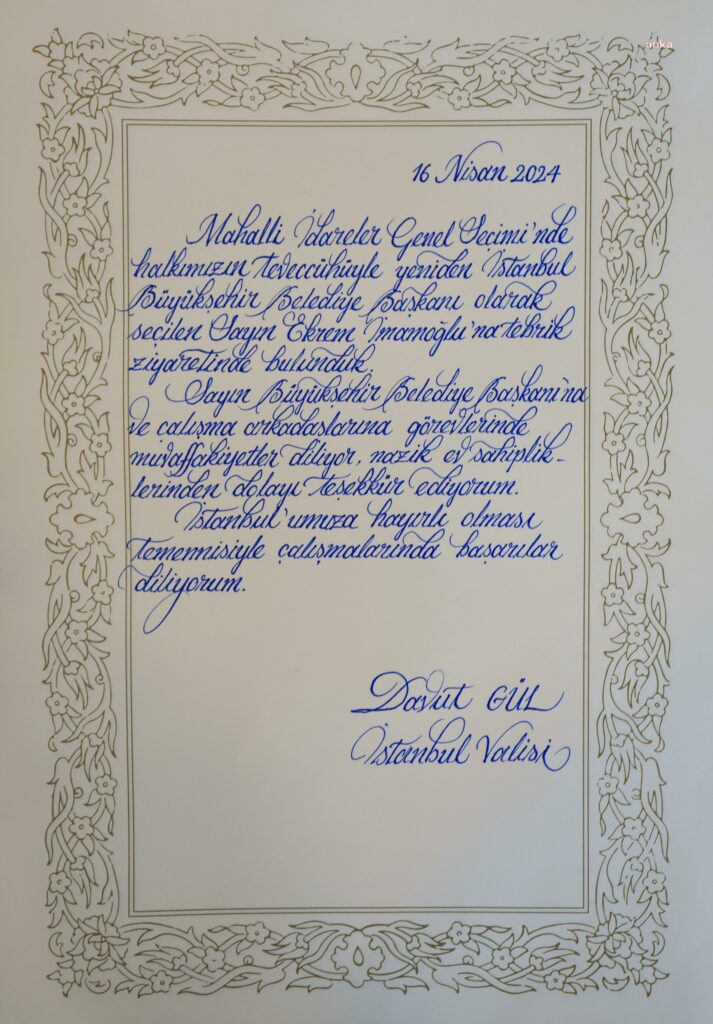 anka
16 Nisan 2024
Mahalli İdareler Genel Seçimi'nde
halkımızın teveccühüyle yeniden İstanbul
Büyükşehir Belediye Başkanı olarak
seçilen Sayın Ekrem İmamoğlu'na tebrik
ziyaretinde bulunduk.
Sayın Büyükşehir Belediye Başkanı'na
ve çalışma arkadaşlarına görevlerinde
muvaffakiyetler diliyor, nazik ev sahiplik-
lerinden dolayı teşekkür ediyorum.
İstanbul'umuza hayırlı olması
temennisiyle çalışmalarında başarılar
diliyorum.
Davut GÜL
İstanbul Valisi